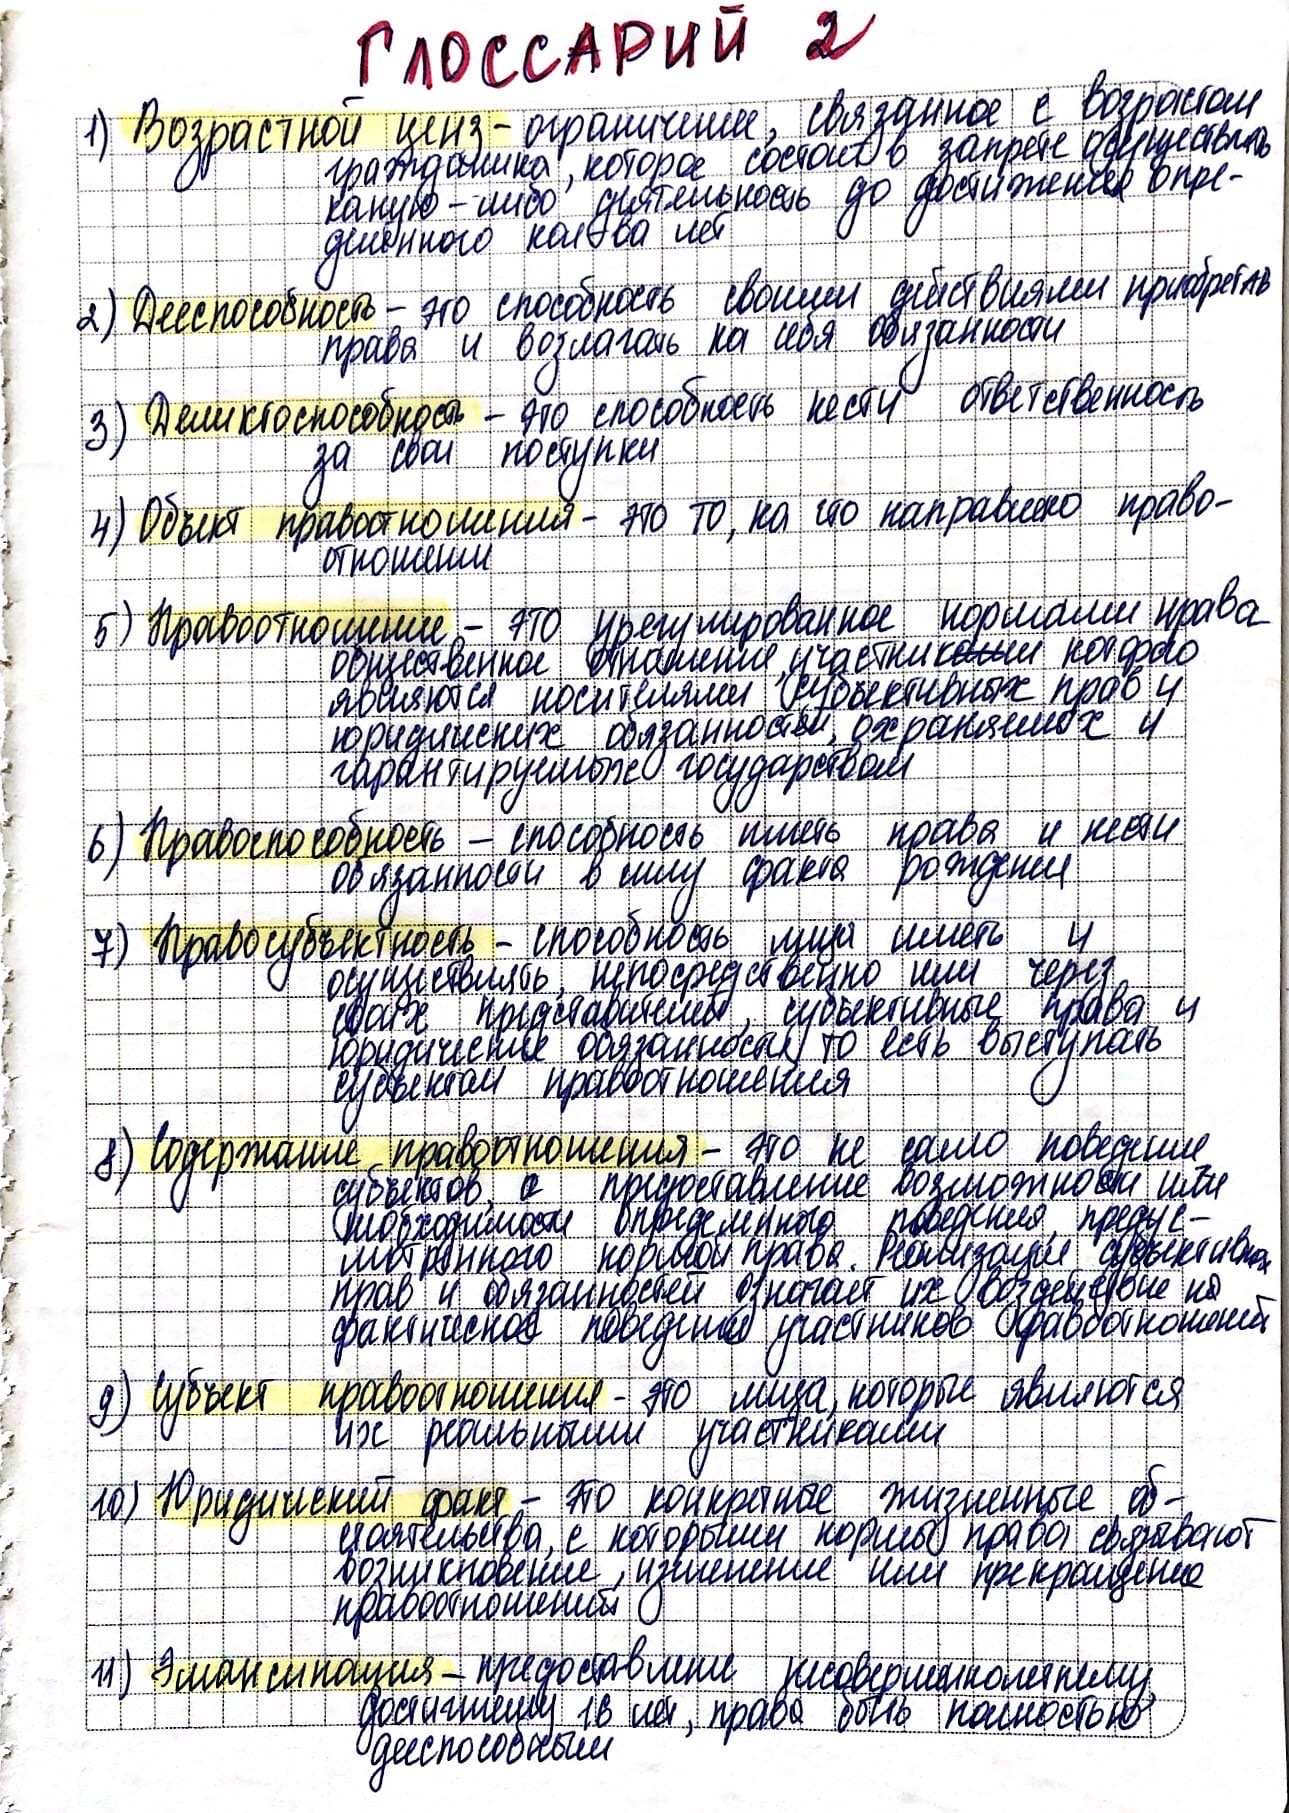 ГЛОССАРИЙ 2
1) Возрастной ценз - ограничение, связанное с возрастом
гражданина, которое состоит в запрете осуществлять
какую-либо деятельность до достижения опре-
делённого кол-ва лет
2) Дееспособность - это способность своими действиями приобретать
права и возлагать на себя обязанности
3) Деликтоспособность - это способность нести ответственность
за свои поступки
4) Объект правоотношения - это то, на что направлено право-
отношение
5) Правоотношение - это урегулированное нормами права
общественное отношение, участники которого
являются носителями субъективных прав и
юридических обязанностей, охраняемых и
гарантируемых государством
6) Правоспособность - способность иметь права и нести
обязанности в силу факта рождения
7) Правосубъектность - способность лица иметь и
осуществлять, непосредственно или через
своих представителей, субъективные права и
юридические обязанности, то есть выступать
субъектом правоотношения
8) Содержание правоотношения - это не само поведение
субъектов, а предоставление возможности или
необходимости определённого поведения, предус-
мотренного нормой права. Реализация субъективных
прав и обязанностей означает их воздействие на
фактическое поведение участников правоотношений
9) Субъект правоотношения - это лица, которые являются
их реальными участниками
10) Юридический факт - это конкретные жизненные об-
стоятельства, с которыми нормы права связывают
возникновение, изменение или прекращение
правоотношений
11) Эмансипация - предоставление несовершеннолетнему,
достигшему 16 лет, права быть полностью
дееспособным